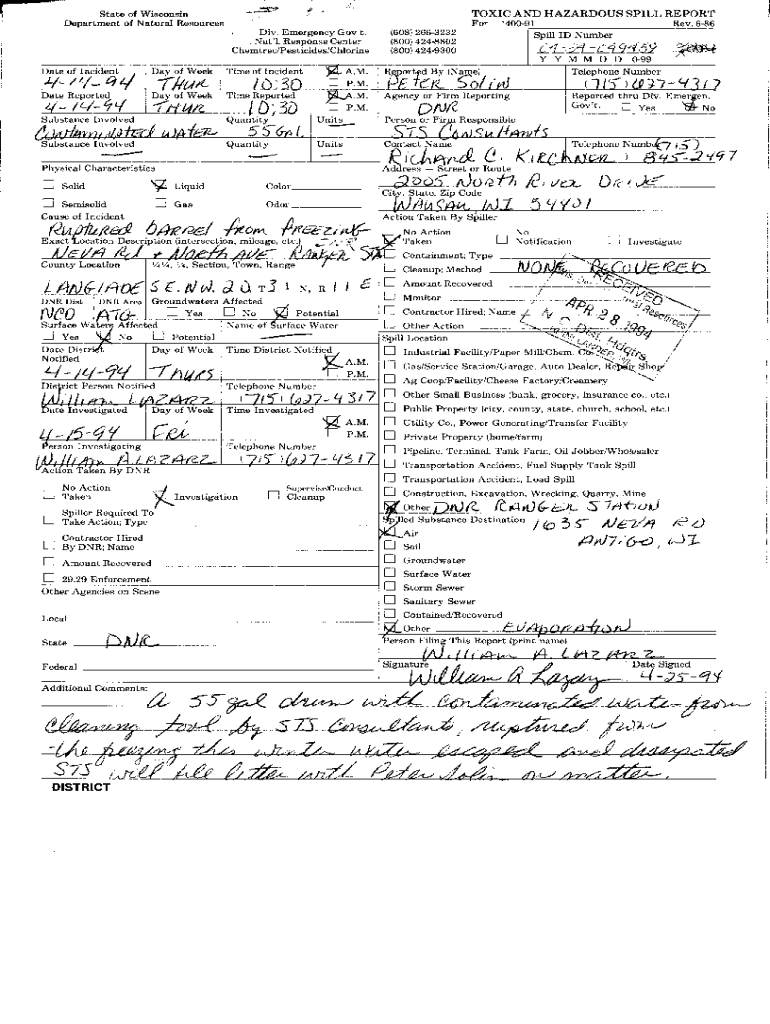 State of Wisconsin
Department of Natural Resources
Div. Emergency Gov't. (608) 266-3232
Nat'l Response Center (800) 424-8802
Chemtrec/Pesticides/Chlorine (800) 424-9300
TOXIC AND HAZARDOUS SPILL REPORT
Rev. 6-86
Spill ID Number
Y Y M M D D 0-99
Date of Incident Day of Week Time of Incident A.M. P.M. Reported By (Name) Telephone Number
4-14-94 THUR 10:30 PETER Solin (715) 627-4317
Date Reported Day of Week Time Reported A.M. P.M. Agency or Firm Reporting Reported thru Div. Emergen. Gov't. Yes No
4-14-94 THUR 10:30 DNR
Substance Involved Quantity Units Person or Firm Responsible
Contaminated water 55 Gal. STS Consultants
Substance Involved Quantity Units Contact Name Telephone Number
Richard C. KIRCHNER (715) 845-2497
Physical Characteristics
Address — Street or Route
2005 North River DRIVE
Solid Liquid Color
City, State, Zip Code
Semisolid Gas Odor
WAUSAU WI 54401
Cause of Incident
Ruptured barrel from freezing
Action Taken By Spiller
No Action Taken No Notification Investigate
Exact Location Description (intersection, mileage, etc.)
NEVA Rd + NORTH AVE RANGER STA
Containment; Type
County Location ¼¼, ¼, Section, Town, Range
Cleanup; Method NONE RECOVERED
LANGLADE SE, NW, 20 T 31 N, R 11 E
Amount Recovered
DNR Dist DNR Area Groundwaters Affected
Monitor
NCD ATG Yes No Potential
Contractor Hired; Name
Surface Waters Affected Name of Surface Water
Other Action
RECEIVED
APR 28 1994
Yes No Potential
Spill Location
Date District Notified Day of Week Time District Notified A.M. P.M.
4-14-94 THURS
Industrial Facility/Paper Mill/Chem. Co.
Gas/Service Station/Garage, Auto Dealer, Repair Shop
Ag Coop/Facility/Cheese Factory/Creamery
District Person Notified Telephone Number
William LAZARZ (715) 627-4317
Other Small Business (bank, grocery, insurance co., etc.)
Public Property (city, county, state, church, school, etc.)
Date Investigated Day of Week Time Investigated A.M. P.M.
4-15-94 FRI
Utility Co., Power Generating/Transfer Facility
Private Property (home/farm)
Person Investigating Telephone Number
William A. LAZARZ (715) 627-4317
Pipeline, Terminal, Tank Farm, Oil Jobber/Wholesaler
Transportation Accident, Fuel Supply Tank Spill
Action Taken By DNR
Transportation Accident, Load Spill
No Action Taken Investigation Supervise/Conduct Cleanup
Construction, Excavation, Wrecking, Quarry, Mine
Other DNR RANGER STATION
Spiller Required To Take Action; Type
Spilled Substance Destination 1635 NEVA RD
Air ANTIGO, WI
Contractor Hired By DNR; Name
Soil
Amount Recovered
Groundwater
29.29 Enforcement
Surface Water
Other Agencies on Scene
Storm Sewer
Sanitary Sewer
Local
Contained/Recovered
Other EVAPORATION
State DNR
Person Filing This Report (print name)
William A. LAZARZ
Federal
Signature Date Signed
William A Lazarz 4-25-94
Additional Comments:
A 55 gal drum with contaminated water from
cleaning tool by STS Consultants, ruptured from
the freezing this winter water escaped and dissipated
STS will file letter with Peter Solin on matter.
DISTRICT